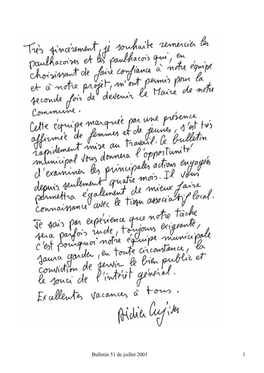 Très sincèrement, je souhaite remercier les
paulhacoises et les paulhacois qui, en
choisissant de faire confiance à notre équipe
et à notre projet, m'ont permis pour la
seconde fois de devenir le Maire de notre
Commune.
Cette équipe marquée par une présence
affirmée de femmes et de jeunes, s'est très
rapidement mise au travail. Le bulletin
municipal vous donnera l'opportunité
d'examiner les principales actions engagées
depuis seulement quatre mois. Il vous
permettra également de mieux faire
connaissance avec le tissu associatif local.
Je sais par expérience que notre tâche
sera parfois rude, toujours exigeante,
c'est pourquoi notre équipe municipale
saura garder, en toute circonstance, la
conviction de servir le bien public et
le souci de l'intérêt général.
Excellentes vacances à tous.
Didier Cujives
Bulletin 51 de juillet 2001 1